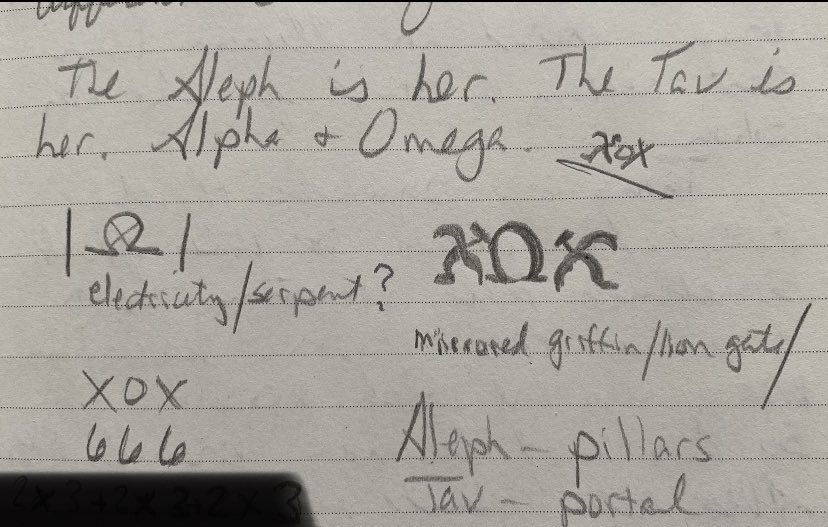 The Aleph is her. The Tav is
her. Alpha + Omega. xox
| Ω |
electricity/serpent?
אΩא
mirrored griffin/lion gate/
XOX
666
Aleph - pillars
Tav - portal
2x3+2x3+2x3